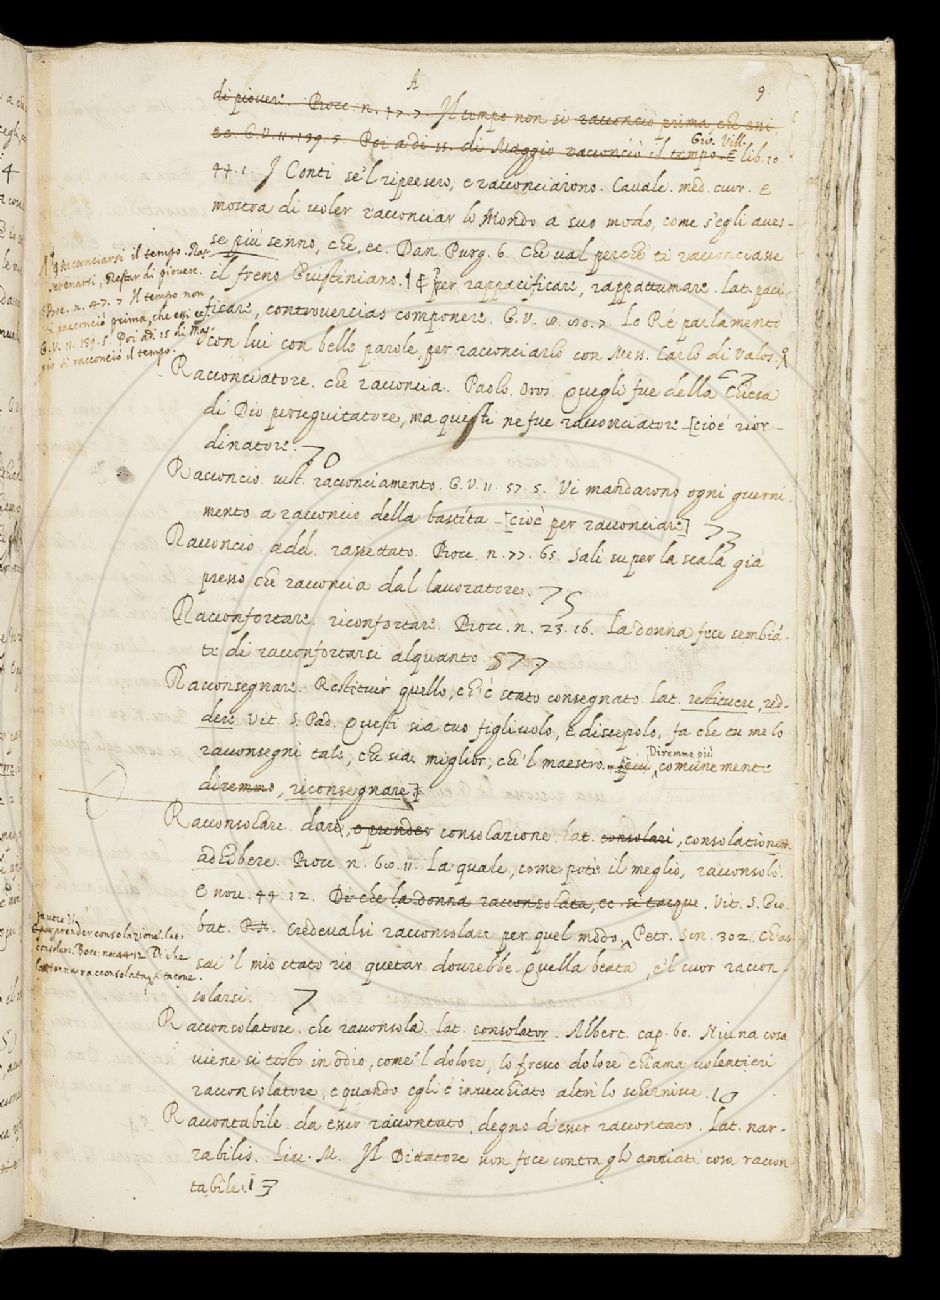 A
9.
di piovere. Bocc. n. 47. 7. Il tempo non si racconciò prima che zni
ec. G.V. 11. 139. 5. Poi a dì 15. di Maggio racconciò il tempo. E Gio. Vill. lib. 10
44. 1. I Conti se'l ripresero, e racconciarono. Cavalc. med. cuor. E
mostra di voler racconciar lo Mondo a suo modo, come s'egli aves-
se più senno, che, ec. Dan. Purg. 6. Che val perchè ti racconciasse
il freno Giustiniano. per rappacificare, rappattumare. lat. paci-
ficare, controversias componere. G. V. Lo Rè parlamentò
con lui con belle parole, per racconciarlo con Mess. Carlo di Valos.
Racconciarsi il tempo. Ras-
serenarsi, Restar di piovere.
Bocc. n. 47. 7 Il tempo non
si racconciò prima, che
G. V. 11. 139. 5. Poi a dì 15 di Mag-
gio si racconciò il tempo.
Racconciatore. che racconcia. Paolo Oros. Quegli fue della Chiesa
di Dio perseguitatore, ma questi ne fue racconciatore [cioè rior-
dinatore. 70
Racconcio. sust. racconciamento. G. V. 11. 57. 5. Vi mandarono ogni guerni-
mento a racconcio della bastita [cioè per racconciare] 73
Racconcio. add. rassettato. Bocc. n. 77. 65. Salì su per la scala già
presso che racconcia dal lavoratore. 75
Racconfortare. riconfortare. Bocc. n. 23. 16. La donna fece sembiã-
te di racconfortarsi alquanto 577
Racconsegnare. Restituir quello, ch'è stato consegnato. lat. restituere, red-
dere. Vit. S. Pad. Questi sia tuo figliuolo, e discepolo, fa che tu me lo
racconsegni tale, che sia miglior, che'l maestro. Diremmo più comunemente
diremmo, riconsegnare]
Racconsolare. dare, o prender consolazione. lat. consolari, consolationem
adhibere. Bocc. n. 60. 11. La quale, come potè il meglio, racconsolò.
E nov. 44. 12. Di che la donna racconsolata, ec. si tacque. Vit. S. Gio.
bat. Credevalsi racconsolare per quel modo. Petr. Son. 302. Chas
sai 'l mio stato rio quetar dovrebbe Quella beata, e'l cuor raccon-
solarsi. 7
prender consolazione. lat.
consolari. Bocc. nov. 44. 12. Di che
la donna racconsolata, si tacque.
Racconsolatore. che racconsola. lat. consolator. Albert. cap. 60. Niuna cosa
viene sì tosto in odio, come 'l dolore, lo fresco dolore chiama volentieri
racconsolatore, e quando egli è invecchiato altri lo schernisce. 10
Raccontabile. da esser raccontato, degno d'esser raccontato. lat. nar-
rabilis. Liv. M. Il Dittatore non fece contra gli anniati cosa raccon
tabile. 13